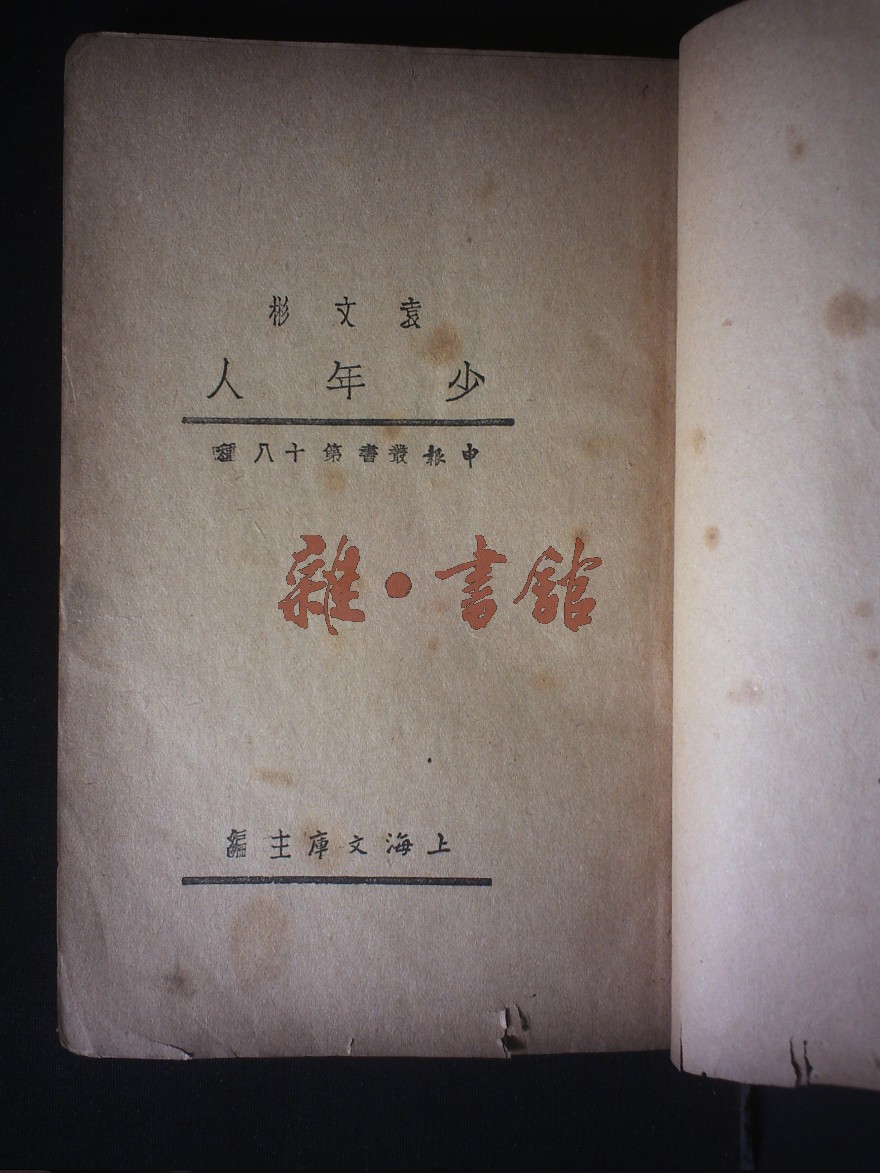 袁文彬
少年人
申報叢書第十八種
雜·書館
上海文庫主編